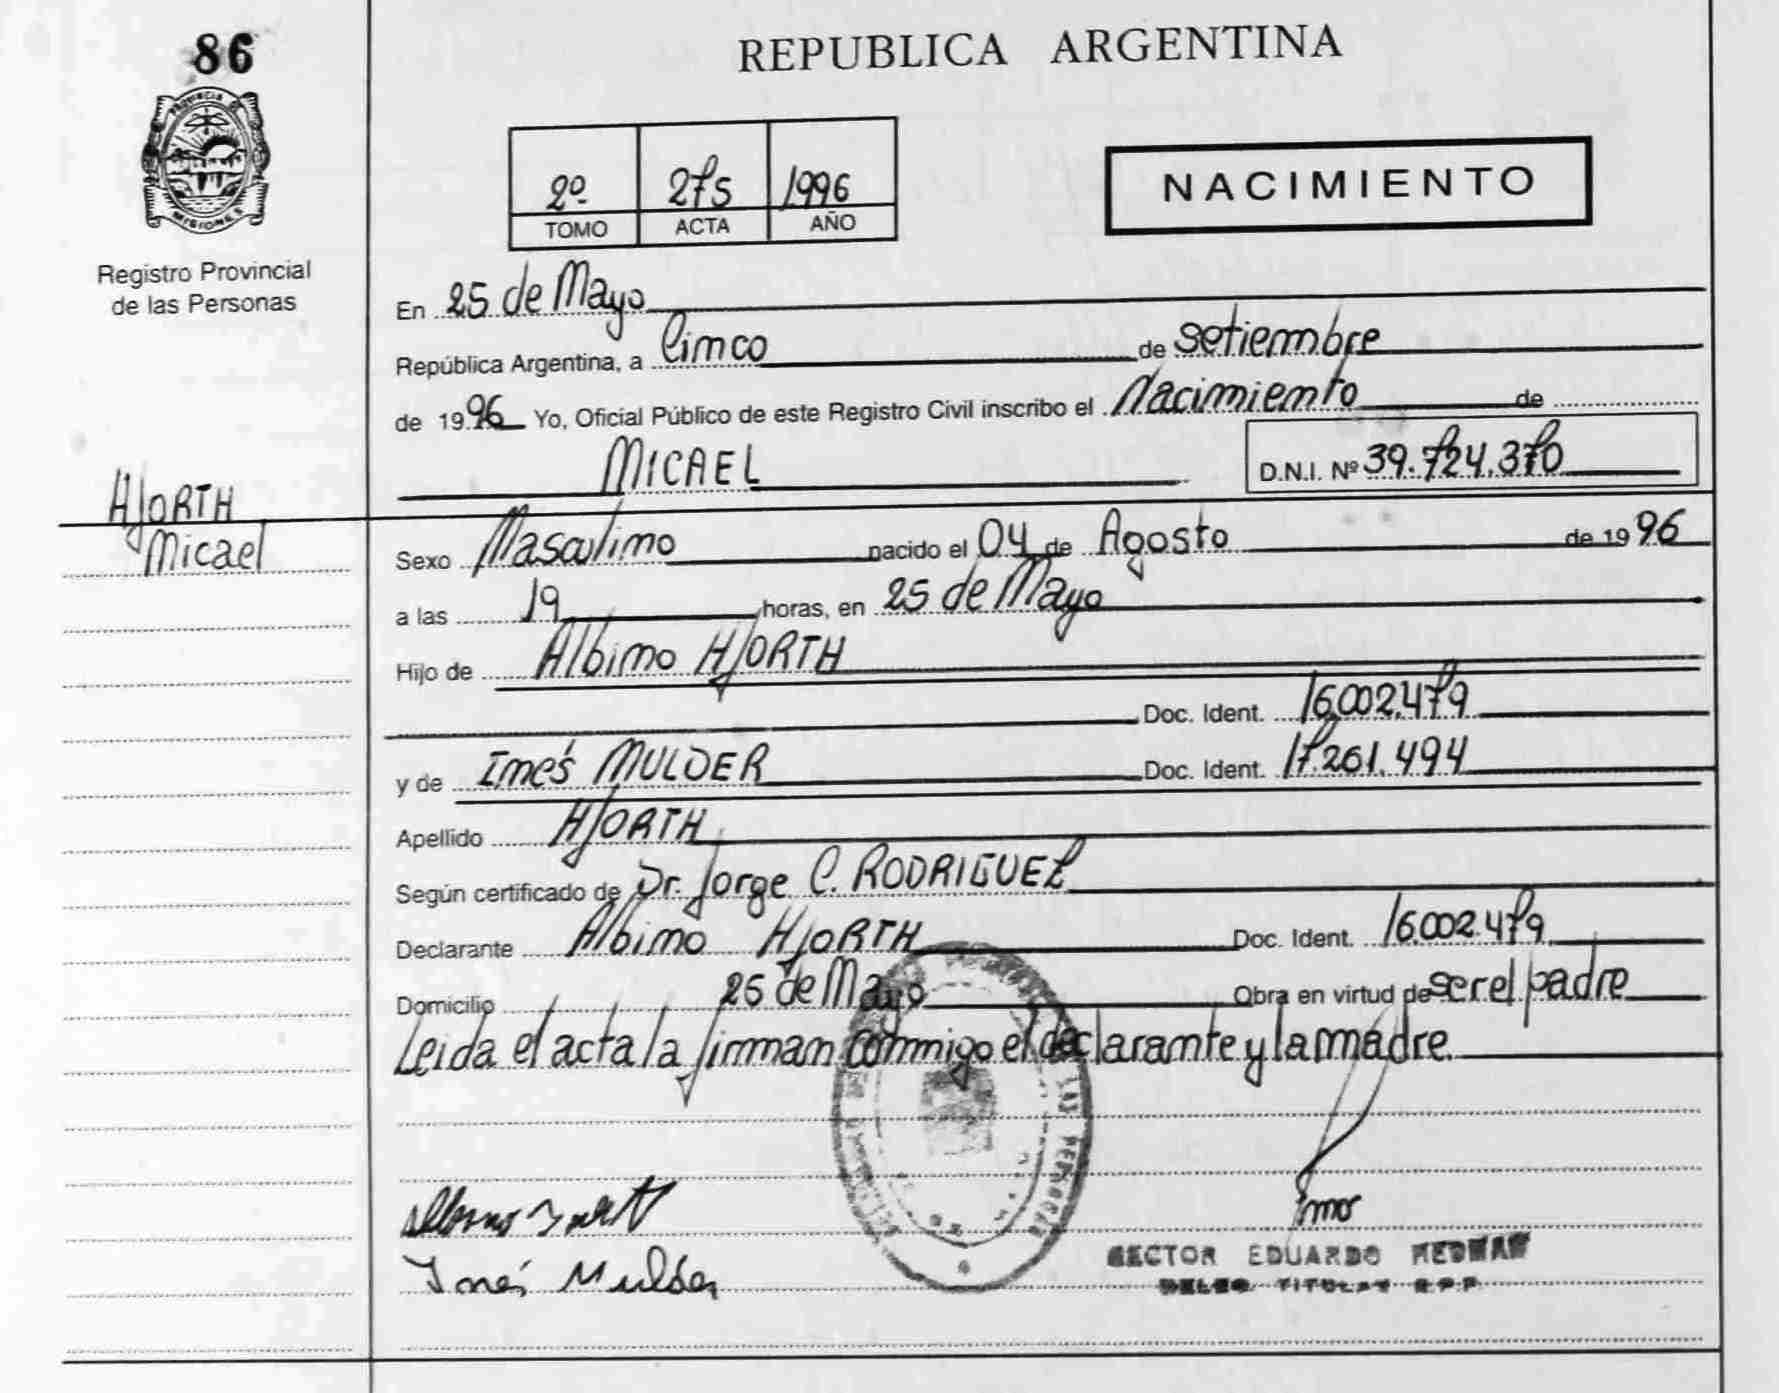 86
REPUBLICA ARGENTINA
PROVINCIA DE
MISIONES
Registro Provincial
de las Personas
2º 275 1996
TOMO ACTA AÑO
NACIMIENTO
En 25 de Mayo
República Argentina, a Cinco de setiembre
de 1996 Yo, Oficial Público de este Registro Civil inscribo el Nacimiento de
MICAEL D.N.I. Nº 39.724.370
HJORTH
Micael
Sexo Masculino nacido el 04 de Agosto de 1996
a las 19 horas, en 25 de Mayo
Hijo de Albino HJORTH
Doc. Ident. 16.002.479
y de Inés MULDER Doc. Ident. 17.261.494
Apellido HJORTH
Según certificado de Dr. Jorge C. RODRIGUEZ
Declarante Albino HJORTH Doc. Ident. 16.002.479
Domicilio 25 de Mayo Obra en virtud de ser el padre
Leida el acta la firman conmigo el declarante y la madre.
LAS PERSONAS
Inés Mulder
HECTOR EDUARDO
TITULAR R.P.P.